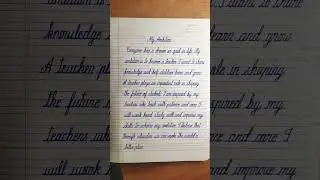 My Ambition
Everyone has a dream or goal in life. My
ambition is to become a teacher. I want to share
knowledge and help children learn and grow
A teacher plays an important role in shaping
the future of students. I am inspired by my
teachers who teach with patience and care. I
will work hard, study well and improve my
skills to achieve my ambition. I believe that
through education we can make the world a
better place.